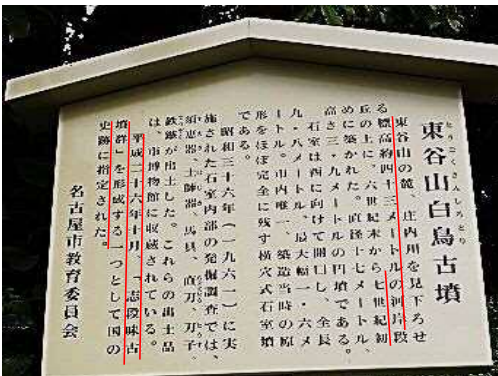 とうごくさんしろとり
東谷山白鳥古墳
東谷山の麓、庄内川を見下ろせ
る標高約四十三メートルの河岸段
丘の上に、六世紀末から七世紀初
めに築かれた。直径十七メートル、
高さ三・九メートルの円墳である。
石室は西に向けて開口し、全長
九・八メートル、最大幅一・六メ
ートル。市内唯一、築造当時の原
形をほぼ完全に残す横穴式石室墳
である。
昭和三十六年(一九六一)に実
施された石室内部の発掘調査では、
須恵器、土師器、馬具、直刀、刀子、
鉄鏃が出土した。これらの出土品
は、市博物館に収蔵されている。
平成二十六年十月、「志段味古
墳群」を形成する一つとして国の
史跡に指定された。
名古屋市教育委員会